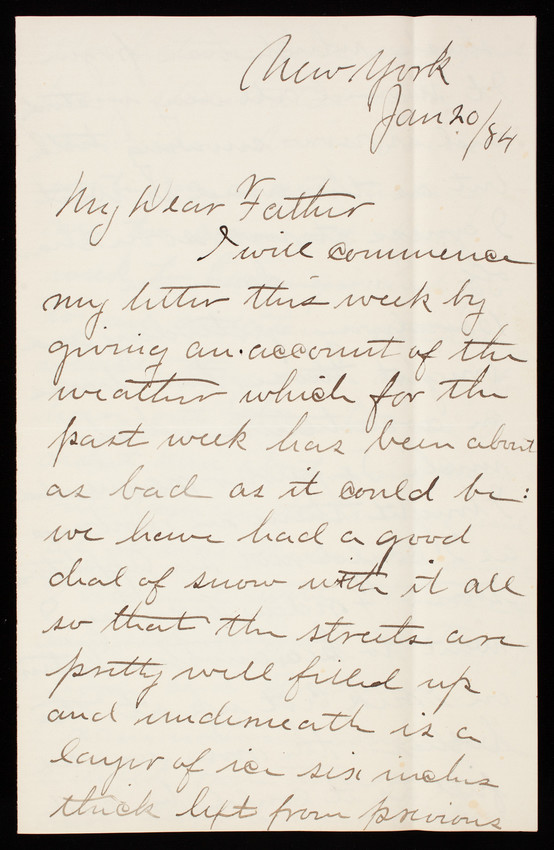 New York
Jan 20/84
My Dear Father
I will commence
my letter this week by
giving an account of the
weather which for the
past week has been about
as bad as it could be:
we have had a good
deal of snow with it all
so that the streets are
pretty well filled up
and underneath is a
layer of ice six inches
thick left from previous